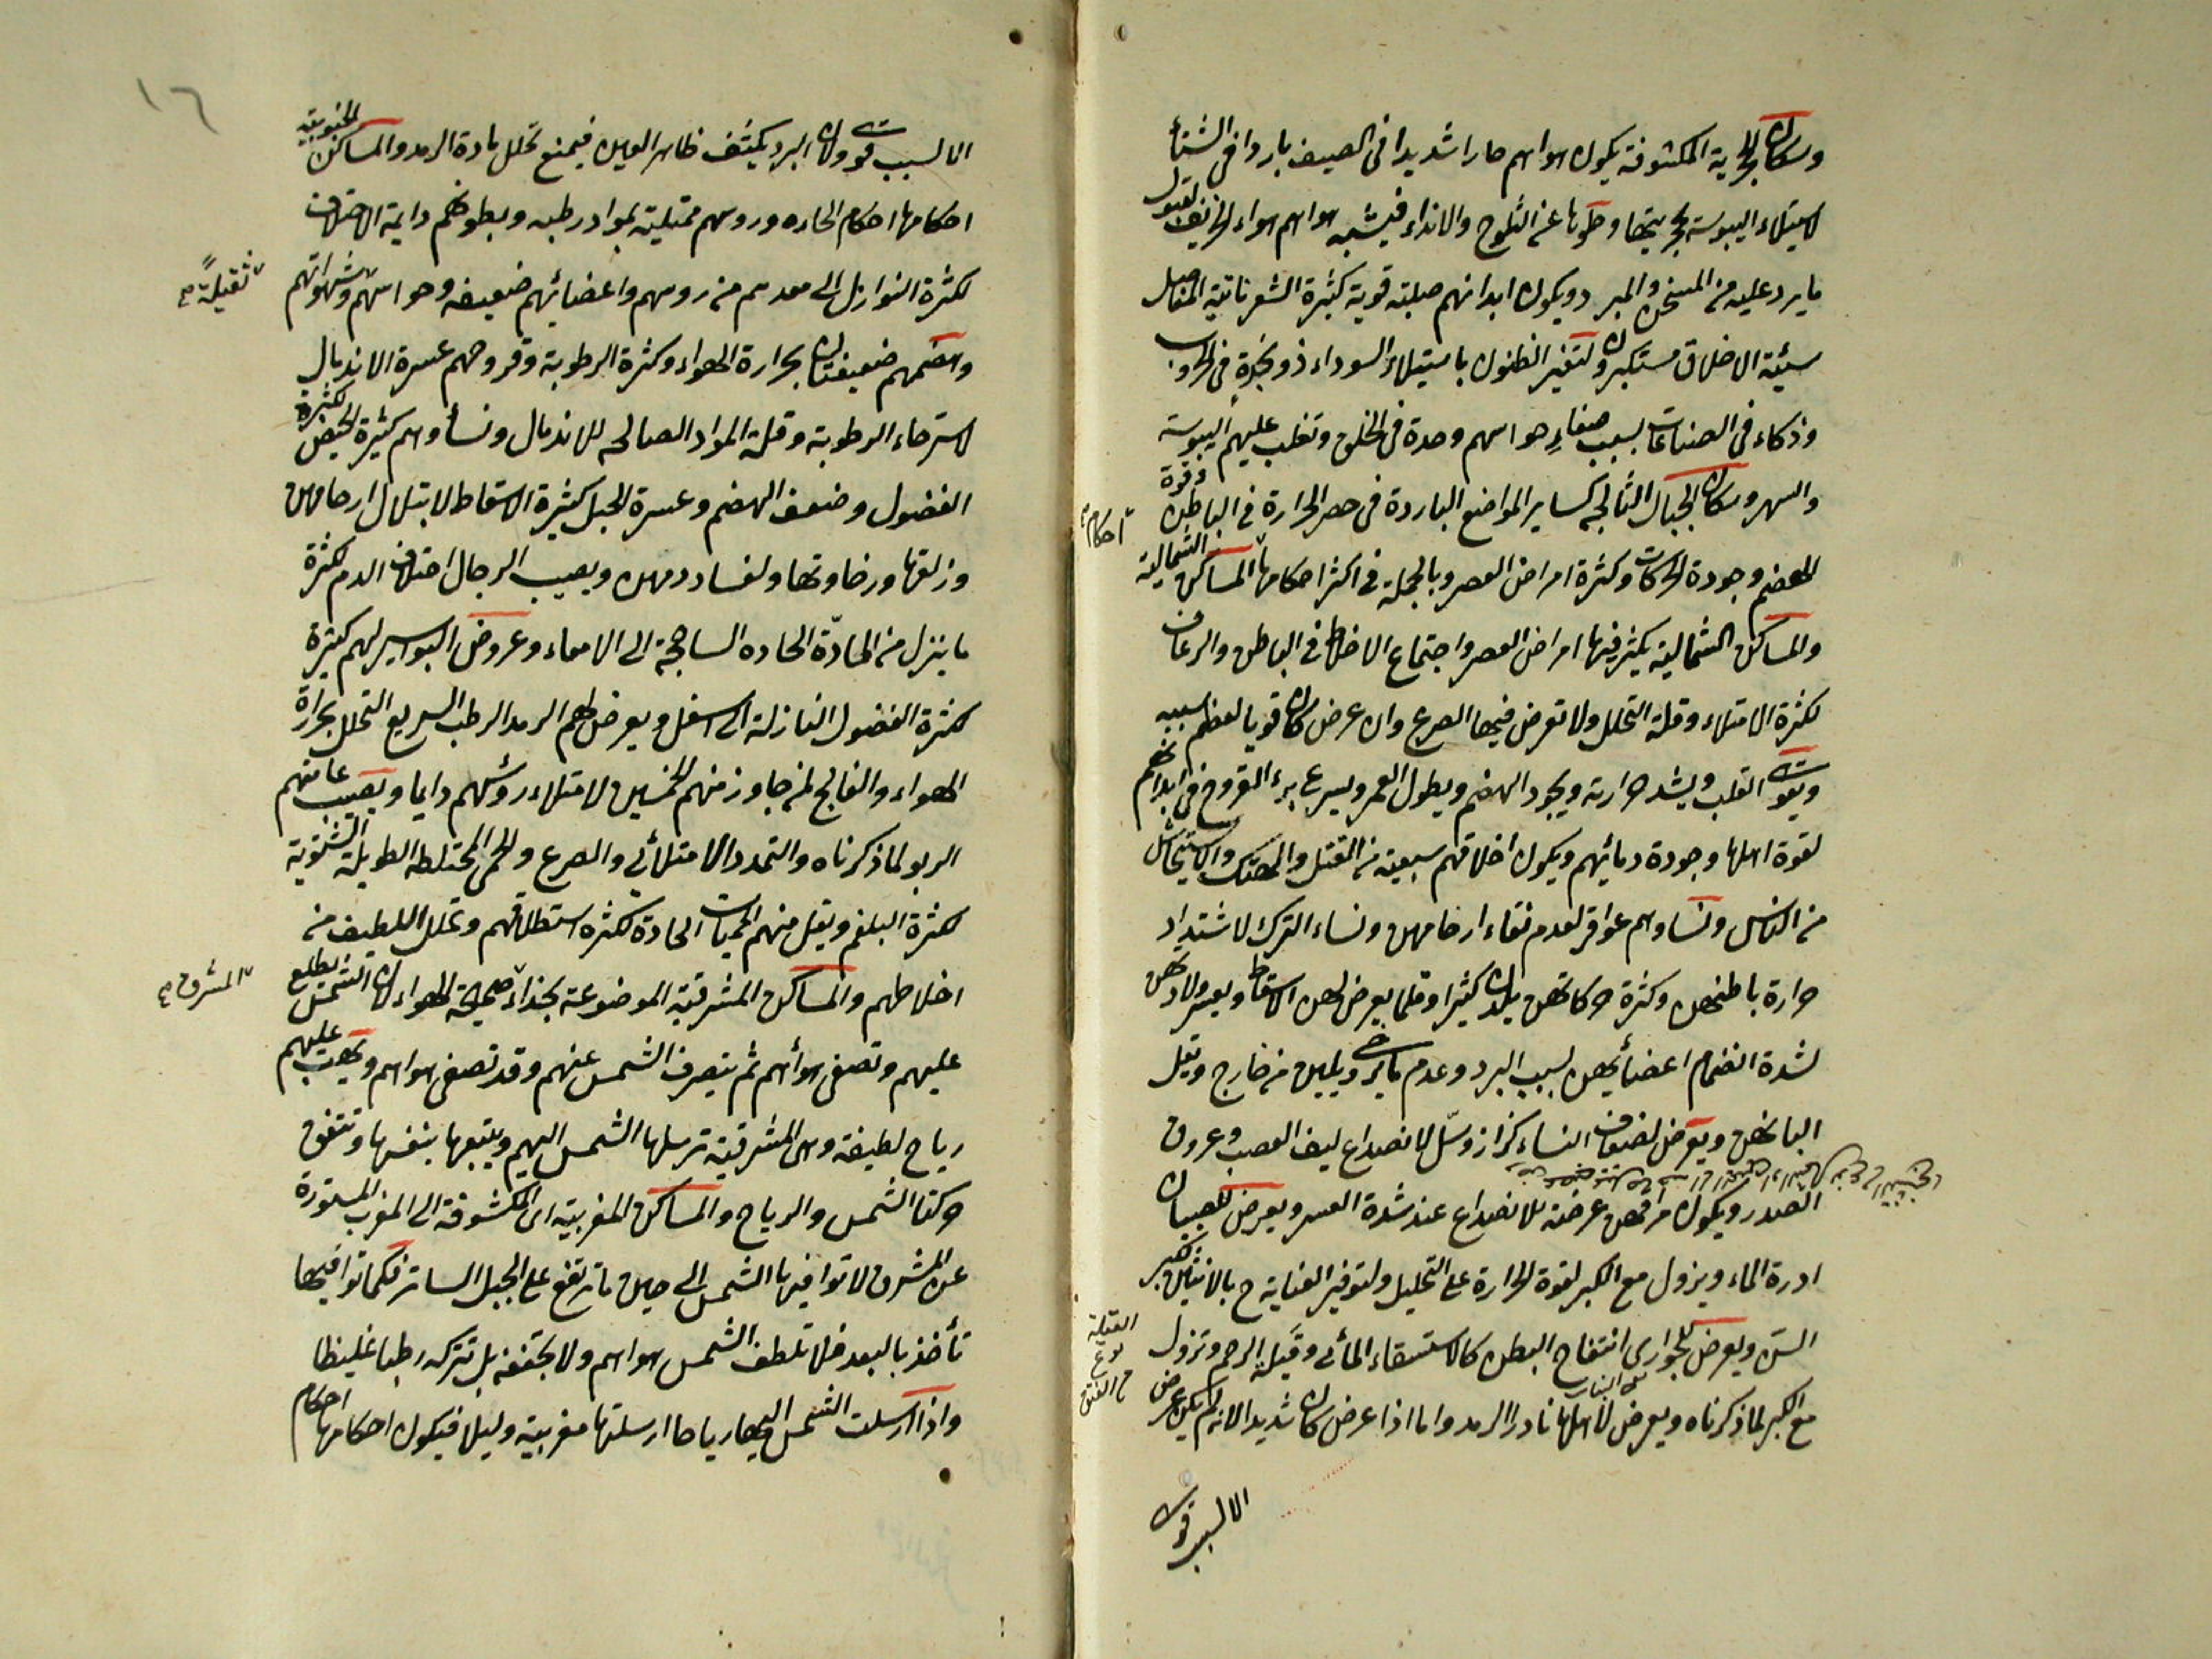 وسكان الحجرية المكشوفة يكون هواهم حارا شديدا في الصيف باردا في الشتأ
لاستيلاء اليبوسة بحجريتها وخلوها عن الثلوج والانداء فيشبه هواهم هواء الخريف لقبول
ما يرد عليه من المسخن والمبرد ويكون ابدانهم صلبة قوية كثيرة الشعر ناتية المفاصل
سيئة الاخلاق مستكبرون لتغير الظنون باستيلاء السوداء ذو نجدة في الحروب
وذكاء في الصناعات بسبب صفاء حواسهم وحدة في الخلق وتغلب عليهم اليبوسة
والسهر وسكان الجبال الثالجة كساير المواضع الباردة في حصر الحرارة في الباطن وقوة
احكام
الهضم وجودة الحركات وكثرة امراض العصر وبالجملة في اكثر احكامها المساكن الشمالية
والمساكن الشمالية يكثر فيها امراض العصر واجتماع الاخلاط في الباطن والرعاف
لكثرة الامتلاء وقلة التحلل ولا تعرض فيها الصرع وان عرض كان قويا لعظم سببه
ويقوى القلب ويشد حرارته ويجود الهضم ويطول العمر ويسرع برء القروح في ابدانهم
لقوة اهلها وجودة دمائهم ويكون اخلاقهم سبعية من القتل والهتك
من الناس ونساوهم عواقر لعدم نقاء ارحامهن ونساء الترك لاشتداد
حرارة باطنهن وكثرة حركاتهن يلدن كثيرا وقلما يعرض لهن الاسقاط ويعسر ولادتهن
لشدة انضمام اعضائهن بسبب البرد وعدم ما يرخى ويلين من خارج وتقل
البانهن ويعرض لضعاف النساء كزاز وسل لانصداع ليف العصب وعروق
الصدر ويكون مراقهن عرضة للانصداع عند شدة العسر ويعرض للصبيان
ادرة الماء ويزول مع الكبر لقوة الحرارة على التحليل ولتوفير العناية ح بالانثيين لكبر
السن ويعرض للجواري انتفاخ البطن كالاستسقاء المائي وقيلة الرحم وتزول
القيلة
نوع
من الفتق
مع الكبر لما ذكرناه ويعرض لاهلها نادرا الرمد واما اذا عرض كان شديدا لانه لم يكن عرض
الا لسبب قوى
١٦
الا لسبب قوى ولان البرد يكثف ظاهر العين فيمنع تحلل مادة الرمد والمساكن الجنوبية
احكامها احكام الحاره وروسهم ممتلية بمواد رطبه وبطونهم دايمة الاختلاف
لكثرة النوازل الى معدهم من روسهم واعضائهم ضعيفه وحواسهم وشهواتهم
ثقيلة
وهضمهم ضعيفتان بحرارة الهواء وكثرة الرطوبة وقروحهم عسرة الاندمال
لاسترخاء الرطوبة وقلة المواد الصالحه للاندمال ونسأوهم كثيرة الحيض لكثرة
الفضول وضعف الهضم وعسرة الحبل كثيرة الاسقاط لابتلال ارحامهن
وزلقها ورخاوتها ولفساد دمهن ويصيب الرجال اختلاف الدم لكثرة
ما ينزل من المادة الحاده الساحجة الى الامعاء وعروض البواسير لهم كثيرة
لكثرة الفضول النازلة الى اسفل ويعرض لهم الرمد الرطب السريع التحلل بحرارة
الهواء والفالج لمن جاوز منهم الخمسين لامتلاء روسهم دايما ويصيب عامتهم
الربو لما ذكرناه والتمدد الامتلائي والصرع والحمى المختلطه الطويلة الشتوية
لكثرة البلغم ويقل منهم الحميات الحادة لكثره استطلاقهم وتحلل اللطيف من
اخلاطهم والمساكن المشرقية الموضوعة بحذاء صحيحة الهواء لان الشمس يطلع
المشرق
عليهم وتصفى هوأهم ثم ينصرف الشمس عنهم وقد تصفى هواهم ويهب عليهم
رياح لطيفة وهي المشرقية ترسلها الشمس اليهم ويتبعها بنفسها وتتفق
حركتا الشمس والرياح والمساكن المغربية اى المكشوفة الى المغرب المستورة
عن المشرق لا توافيها الشمس الى حين ما ترتفع على الجبل الساتر فكما توافيها
تأخذ بالبعد فلا تلطف الشمس هواهم ولا تجففه بل تتركه رطبا غليظا
واذا ارسلت الشمس اليها رياحا ارسلتها مغربية وليلا فيكون احكامها احكام